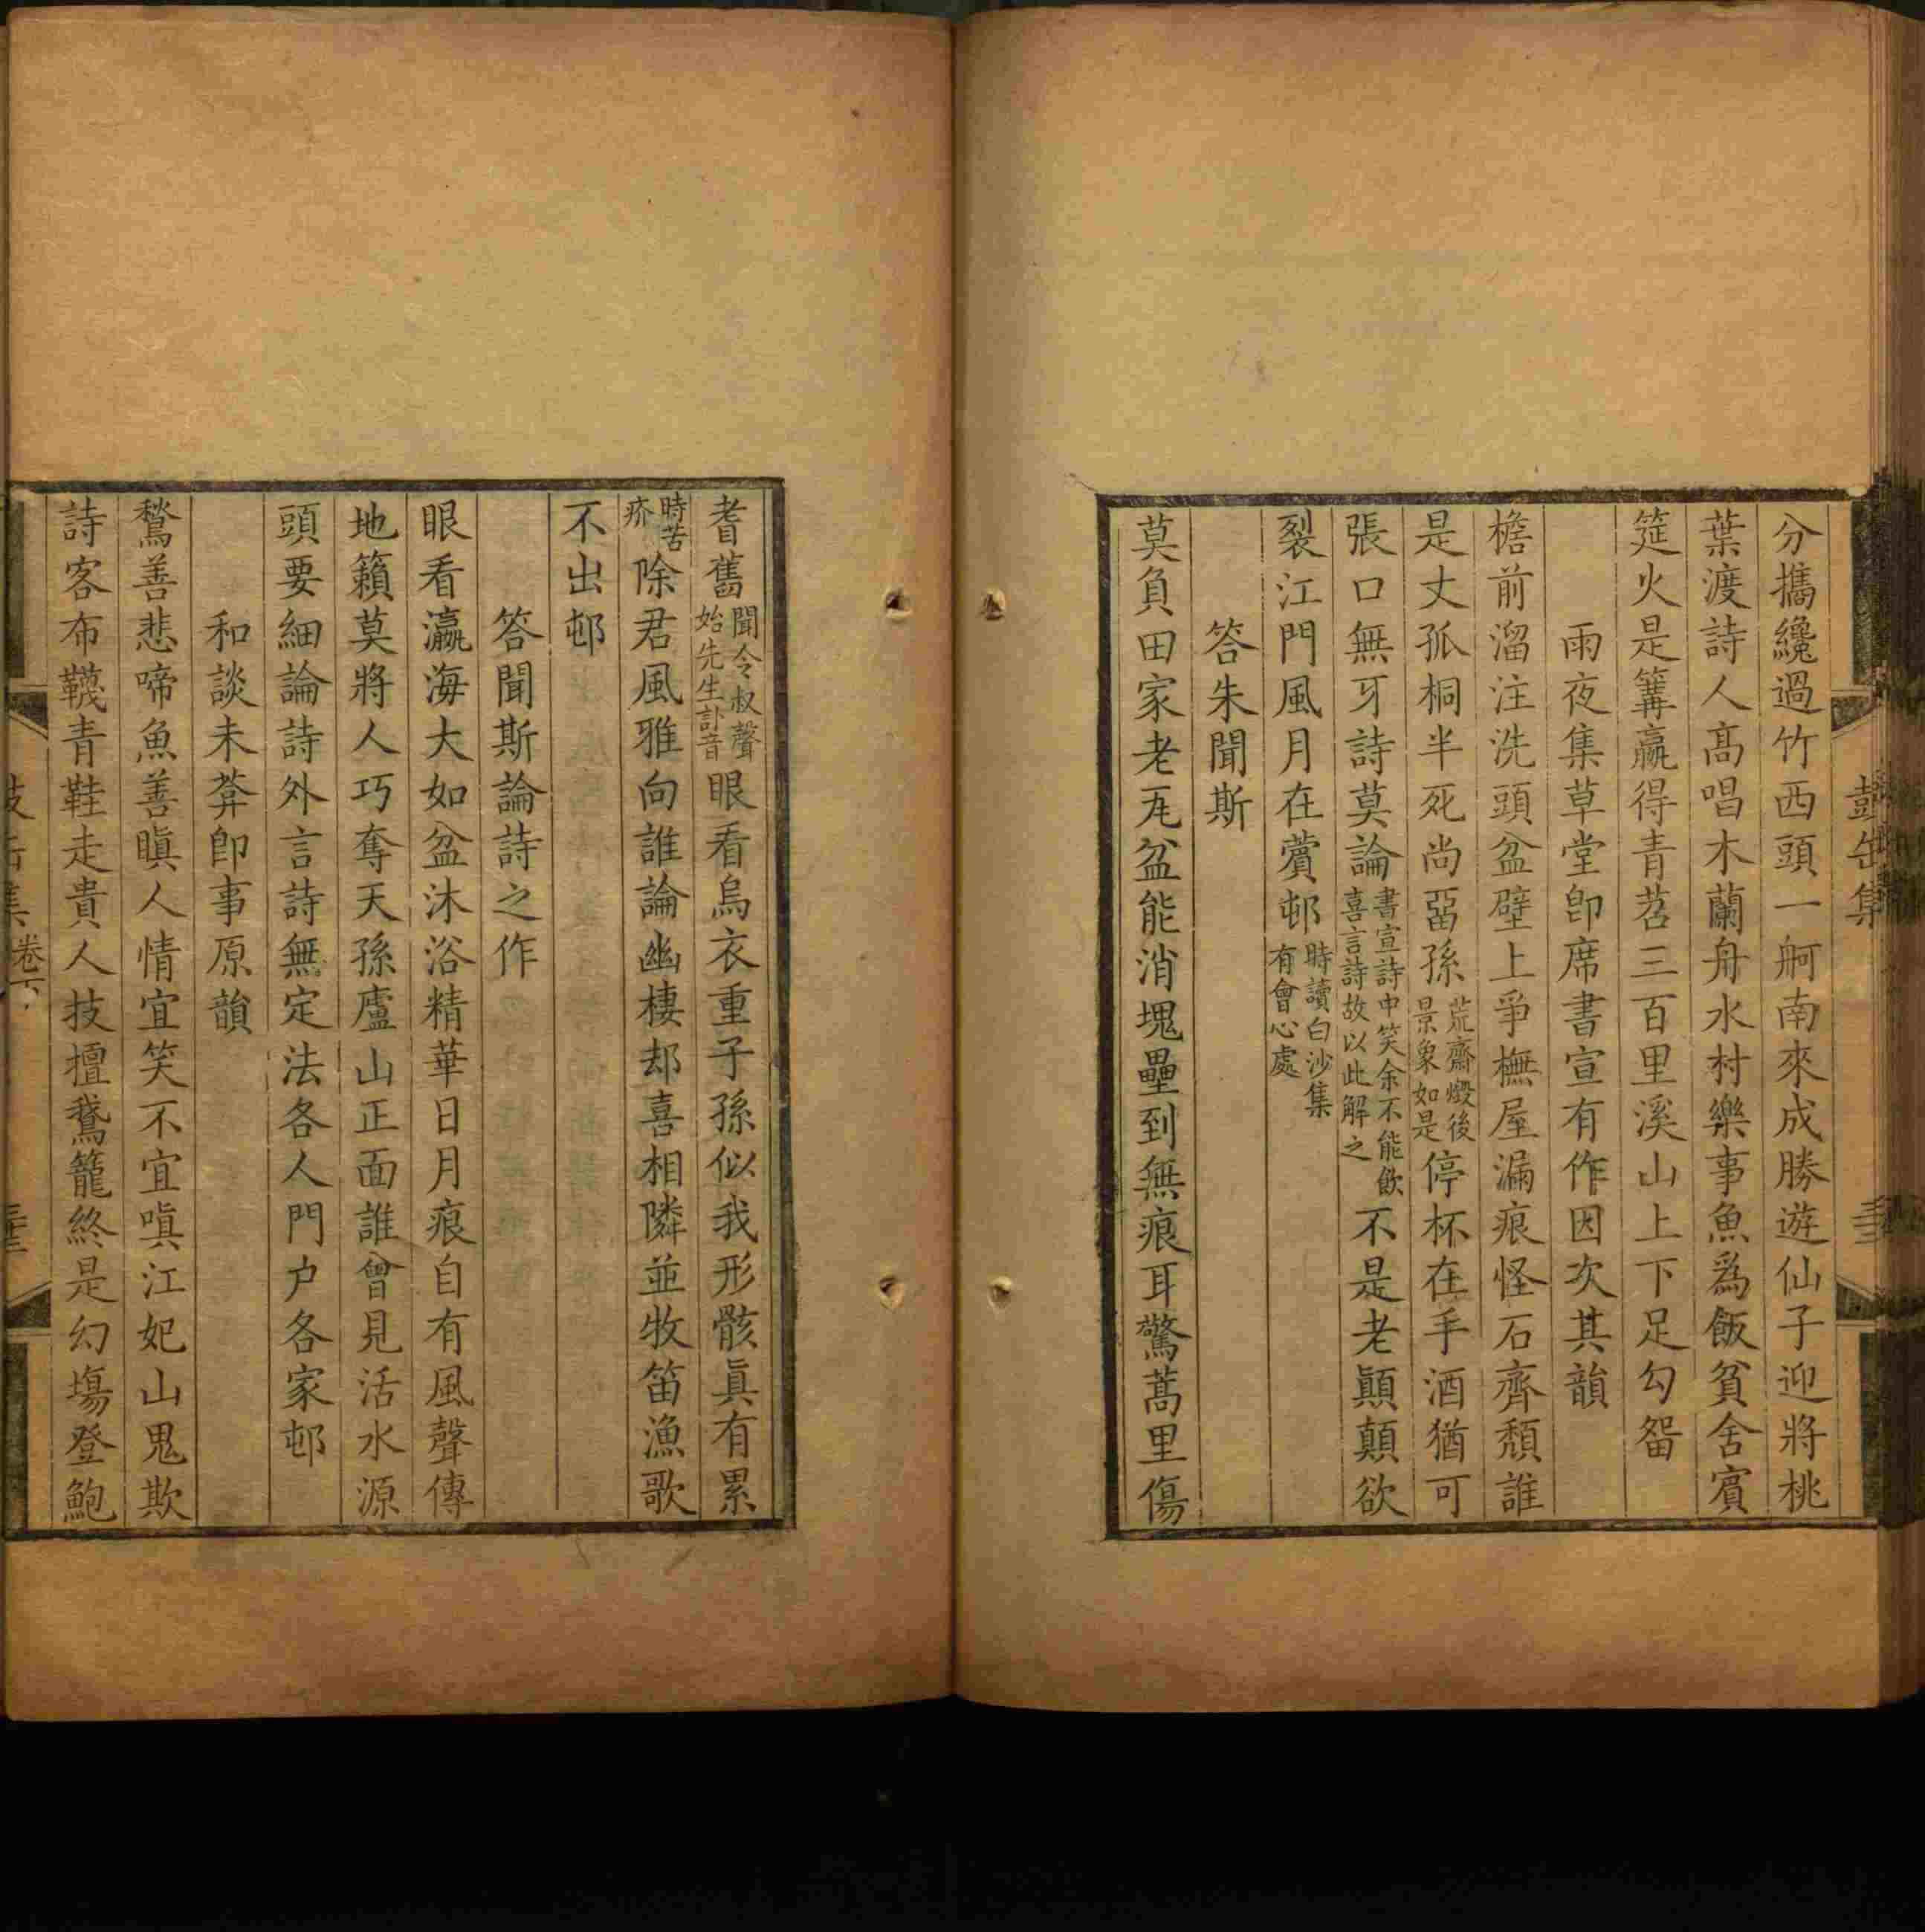 分攜纔過竹西頭一舸南來成勝遊仙子迎將桃
葉渡詩人高唱木蘭舟水村樂事魚爲飯貧舍賓
筵火是篝贏得青苕三百里溪山上下足勾留
雨夜集草堂卽席書宣有作因次其韻
檐前溜注洗頭盆壁上爭橅屋漏痕怪石齊頹誰
是丈孤桐半死尚畱孫荒齋燬後景象如是停杯在手酒猶可
張口無牙詩莫論書宣詩中笑余不能飲喜言詩故以此解之不是老顚顛欲
裂江門風月在藚邨時讀白沙集有會心處
答朱聞斯
莫負田家老瓦盆能消塊壘到無痕耳驚蒿里傷
耆舊聞令叔聲始先生訃音眼看烏衣重子孫似我形骸眞有累
時苦疥除君風雅向誰論幽棲却喜相隣並牧笛漁歌
不出邨
答聞斯論詩之作
眼看瀛海大如盆沐浴精華日月痕自有風聲傳
地籟莫將人巧奪天孫廬山正面誰曾見活水源
頭要細論詩外言詩無定法各人門户各家邨
和談未菴卽事原韻
鶖善悲啼魚善瞋人情宜笑不宜嗔江妃山鬼欺
詩客布韈青鞋走貴人技擅鵞籠終是幻塲登鮑
集卷六